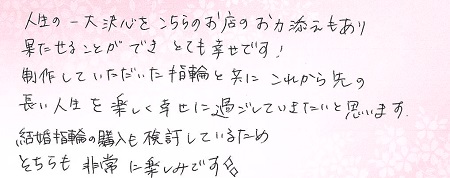 人生の一大決心をこちらのお店のお力添えもあり
果たせることができ とても幸せです!
制作していただいた指輪と共に これから先の
長い人生を楽しく幸せに過ごしていきたいと思います.
結婚指輪の購入も検討しているため
そちらも 非常に楽しみです